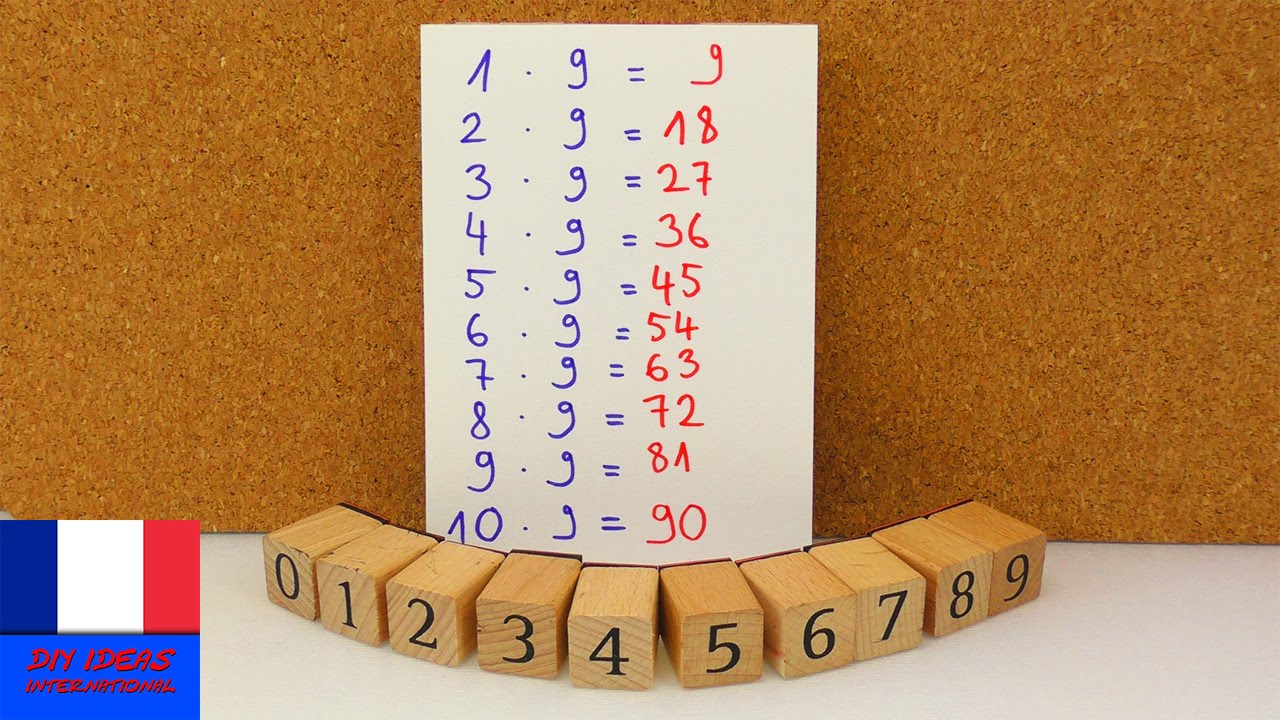 1 · 9 = 9
2 · 9 = 18
3 · 9 = 27
4 · 9 = 36
5 · 9 = 45
6 · 9 = 54
7 · 9 = 63
8 · 9 = 72
9 · 9 = 81
10 · 9 = 90
0 1 2 3 4 5 6 7 8 9
DIY IDEAS
INTERNATIONAL